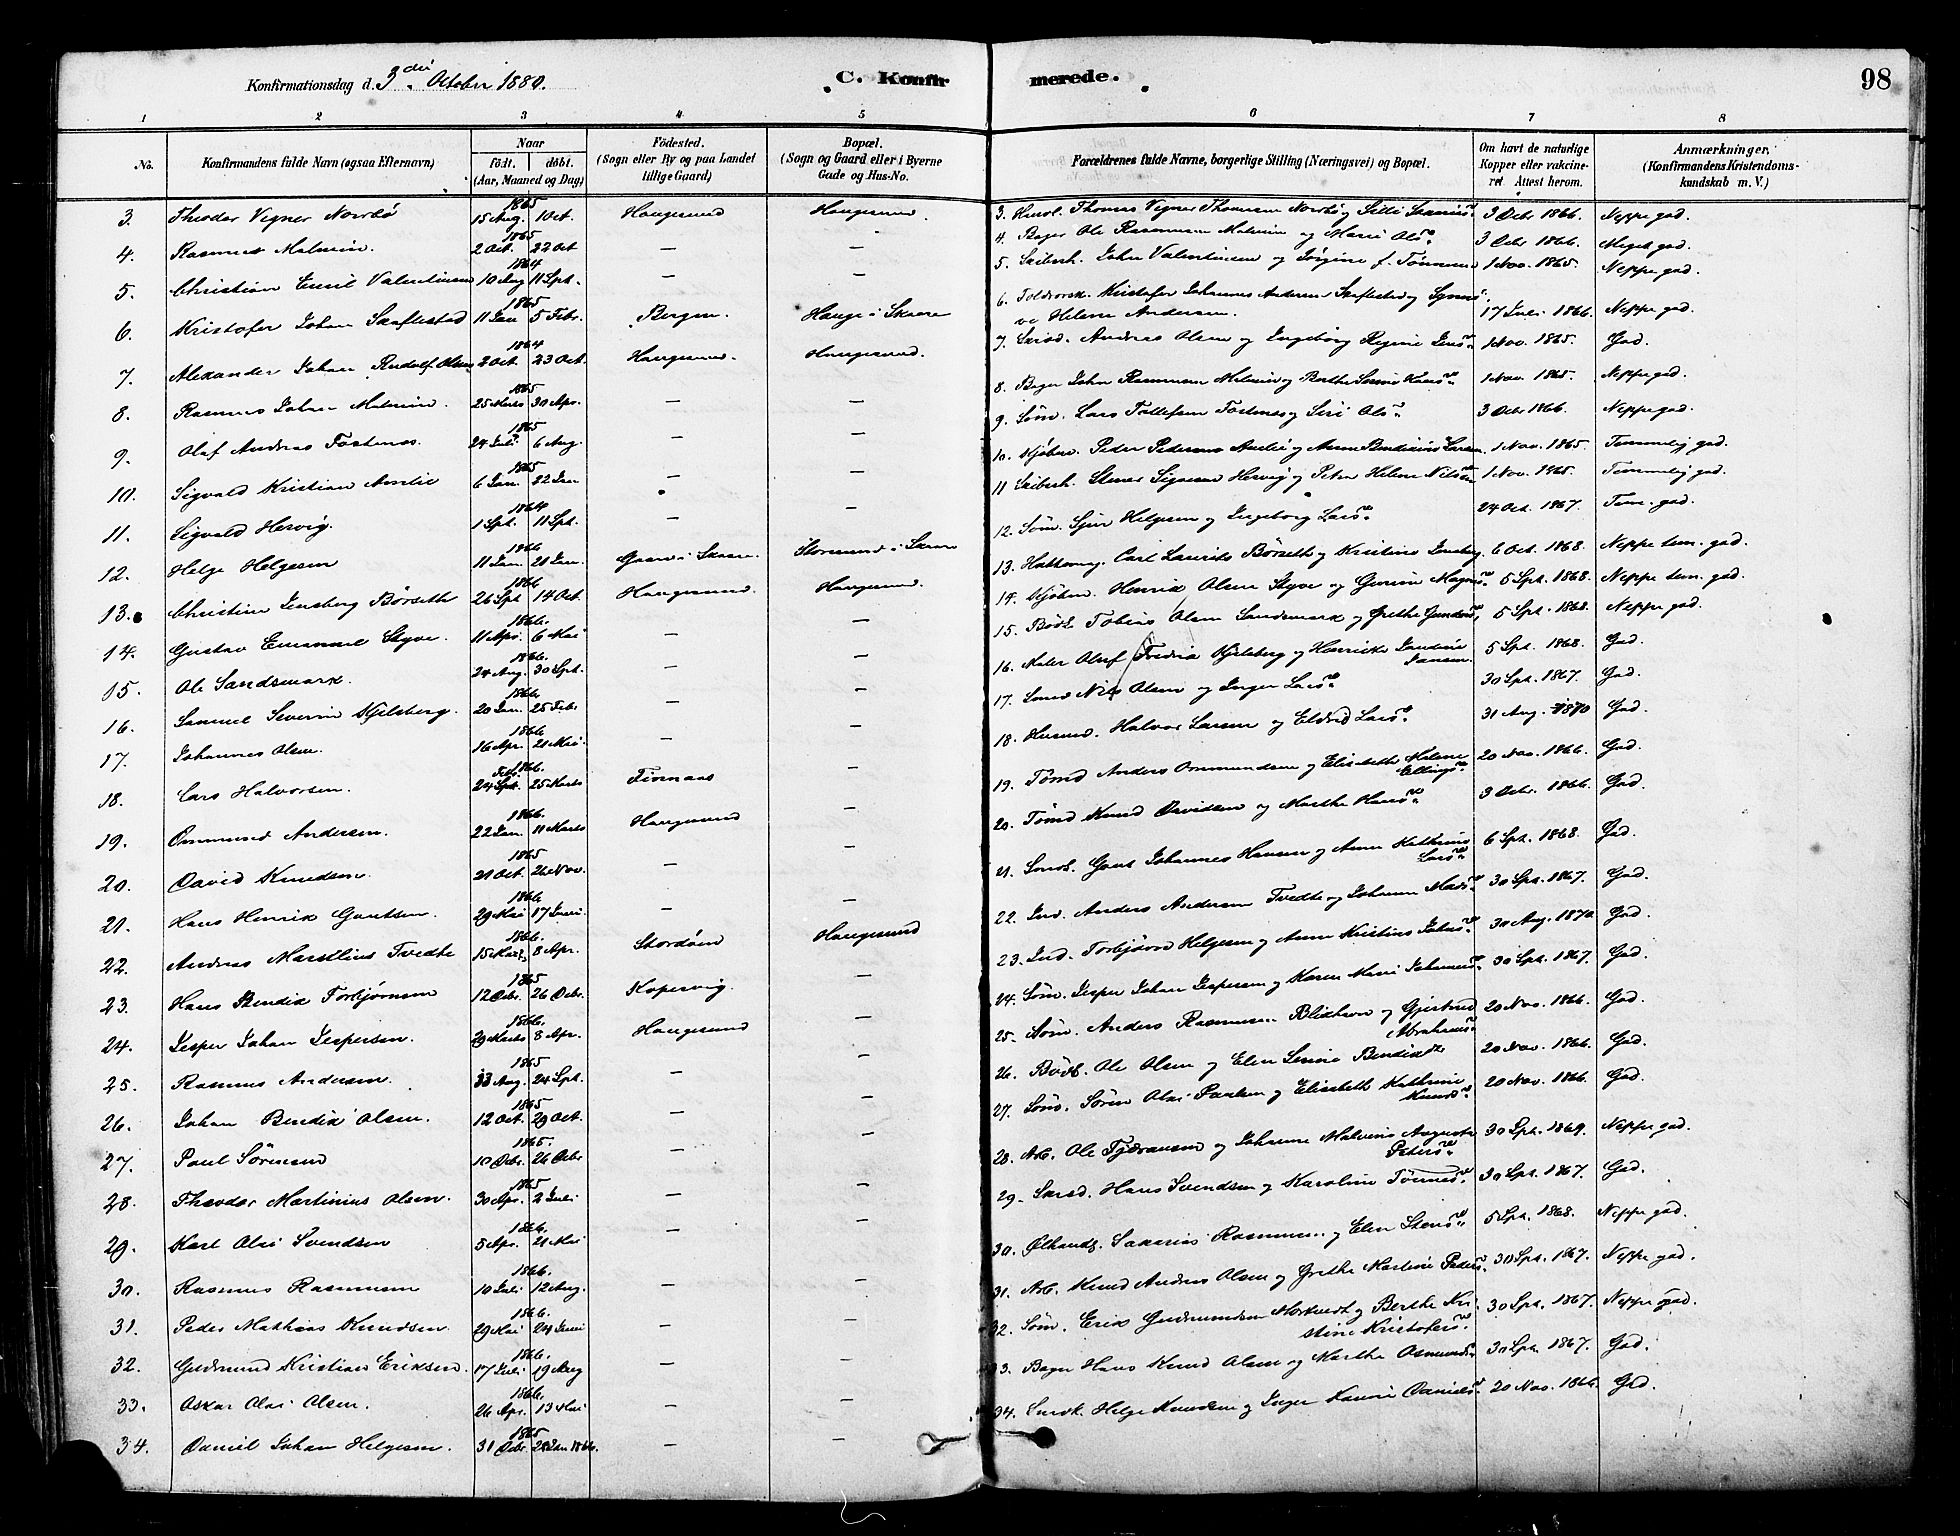 Konfirmationsdag d. 3die October 1880.
C. Konfir
merede.
98
1 2 3 4 5 6 7 8
No.
Konfirmandens fulde Navn (ogsaa Efternavn)
Naar
födt. döbt.
(Aar, Maaned og Dag)
Födested.
(Sogn eller By og paa Landet
tillige Gaard)
Bopæl.
(Sogn og Gaard eller i Byerne
Gade og Hus-No.
Forældrenes fulde Navne, borgerlige Stilling (Næringsvei) og Bopæl.
Om havt de naturlige
Kopper eller vakcine-
ret Attest herom.
Anmærkninger,
(Konfirmandens Kristendoms-
kundskab m. V.)
1865
3. Theodor Vegner Nordbö 15 Aug. 1 Oct. Haugesund Haugesund.
1865
4. Rasmus Malmin. 2 Oct. 22 Oct — —
1864
5. Christian Emil Valentinsen 10 Aug 11 Spt. — —
1865
6. Kristofer Johan Skaftestad 11 Jan 5 Febr. Bergen. Hauge i Skaare
1864
7. Alexander Johan Rudolf Olsen 2 Oct. 23 Oct. Haugesund. Haugesund.
1865
8. Rasmus Johan Malmin. 25 Marts 30 Apr. — —
1865
9. Olaf Andreas Fostenes. 24 Juli 6 Aug. — —
1865
10. Sigvald Kristian Amlie 6 Jan. 22 Jan — —
1864
11. Sigvald Hervig. 1 Spt. 11 Spt. — —
1866
12. Helge Helgesen 11 Jan. 21 Jan. i Skaare. i Skaare
1866
13. Christine Jensberg Börseth 26 Spt 14 Oct. Haugesund Haugesund
1866.
14. Gustav Emanuel Styve. 11 Apr. 6 Mai — —
1866.
15. Ole Sandsmark. 24 Aug. 30 Spt. — —
1866
16. Samuel Severin Kjelsberg. 20 Jan. 25 Febr — —
1866
17. Johannes Olsen. 16 Apr. 21 Mai. — —
1866.
18. Lars Halvorsen. Febr. 24 Spt. 25 Marts Finnaas —
1866.
19. Ommund Andersen. 22 Jan. 11 Marts Haugesund —
1865
20. David Knudsen. 21 Oct. 26 Nov. — —
1866
21. Hans Henrik Gautsen. 29 Mai 17 Juni. — —
1866.
22. Andreas Marselius Tvedte 15 Marts 8 Apr. Stordöen Haugesund
1865
23. Hans Bendik Torbjörnsen 12 Decbr. 26 Decbr. Kopervig. —
1866.
24. Jesper Johan Jespersen. 29 Marts 8 Apr. Haugesund —
1865
25. Rasmus Andersen. Aug. 24 Spt. — —
1865
26. Johan Bendik Olsen. 12 Oct. 29 Oct. — —
1865.
27. Paul Sörensen 10 Decbr. 26 Decbr — —
1865
28. Theodor Martinius Olsen. 30 Apr. 2 Juli — —
1866.
29. Karl Olai Svendsen 5 Apr. 21 Mai — —
1866.
30. Rasmus Rasmussen 10 Juli 12 Aug. — —
1866.
31. Peder Mathias Knudsen. 29 Mai 24 Juni — —
1866.
32. Gudmund Kristian Eriksen. 17 Juli 19 Aug — —
1866.
33. Oskar Olai Olsen. 26 Apr. 13 Mai — —
1865
34. Daniel Johan Helgesen. 31 Decbr. 28 Jan 1866. — —
3. Thomas Vegner Thomsen Nordbö og 3 Decbr 1866. Neppe god.
4. Bager Ole Rasmussen Malmin og Marie Olsd. 3 Decbr 1866. Meget god.
5. Skibsk. Johan Valentinsen og Jörgine f. Tönnesen 1 Nov. 1865. Neppe god.
6. Toldvorsk. Kristofer Johannes Andersen Skaftestad og
Helene Andersen. 17 Juli 1866. Neppe god.
7. Andreas Olsen og Ingeborg Regine 1 Nov. 1865. God.
8. Bager Johan Rasmussen Malmin og Berthe 1 Nov. 1865. Neppe god.
9. Söm. Lars Tollefsen Fostenes og Siri Olsd. 3 Decbr 1866. Neppe god.
10. Kjöbm. Peder Pedersen Amlie og Anne Bendikine Larsen 1 Nov. 1865. Temmelig god.
11 Skibsk. Stener Sigvesen Hervig og Petra Helene Nilsd. 1 Nov. 1865. Temmelig god.
12. Söm. Sjur Helgesen og Ingeborg Larsd. 24 Oct. 1867. Tem. god.
13. Hattemag. Carl Laurits Börseth og Kristine Jensberg 6 Oct. 1868. Neppe tem. god.
14. Kjöbm. Henrik Olsen Styve og 5 Spt. 1868. Neppe tem. god.
15. Bödk. Tobias Olsen Sandsmark og Grethe Gundersd. 5 Spt. 1868. Neppe god.
16. Maler Oluf Fredrik Kjelsberg og Henrikke
Jansen. 5 Spt. 1868. God.
17. Nils Olsen og Inger Larsd. 30 Spt. 1867. God.
18. Husmd. Halvor Larsen og Eldrid Larsd. 31 Aug. 1870 God.
19. Tömd Anders Ommundsen og Elisabeth Malene
Ellingsd. 20 Nov. 1866. God.
20. Tömd Knud Davidsen og Marthe Hansd. 3 Decbr. 1866. God.
21. Gaut Johannes Hansen og Anne Kathrine
Larsd. 6 Spt. 1868. God.
22. Ind. Anders Andersen Tvedte og Johanne 30 Spt. 1867. God.
23. Ind. Torbjörn Helgesen og Anne Kristine 30 Aug. 1870. God.
24. Söm. Jesper Johan Jespersen og Karen Marie 30 Spt. 1867. God.
25. Söm. Anders Rasmussen Blikhavn og Gjertrud
Abrahamsd. 20 Nov. 1866. God.
26. Bödk. Ole Olsen og Elen Bendiksd. 20 Nov. 1866. God.
27. Sören Olai Paulsen og Elisabeth Kathrine
Knudsd. 20 Nov. 1866. God.
28. Arb. Ole og Johanne Malvine Auguste
Petersd. 30 Spt. 1869. Neppe god.
29. Hans Svendsen og Karoline Tönnesd. 30 Spt. 1867. God.
30. Ölhandl. Sakarias Rasmussen og Elen Stensd. 5 Spt. 1868. Neppe god.
31. Arb. Knud Andreas Olsen og Grethe Martine Pedersd. 30 Spt. 1867. Neppe god.
32. Söm. Erik Gudmundsen og Berthe Kri-
stine Kristofersd. 30 Spt. 1867. Neppe god.
33. Bager Hans Knud Olsen og Marthe Osmundsd. 30 Spt. 1867. God.
34. Helge Knudsen og Inger Danielsd. 20 Nov. 1866. God.